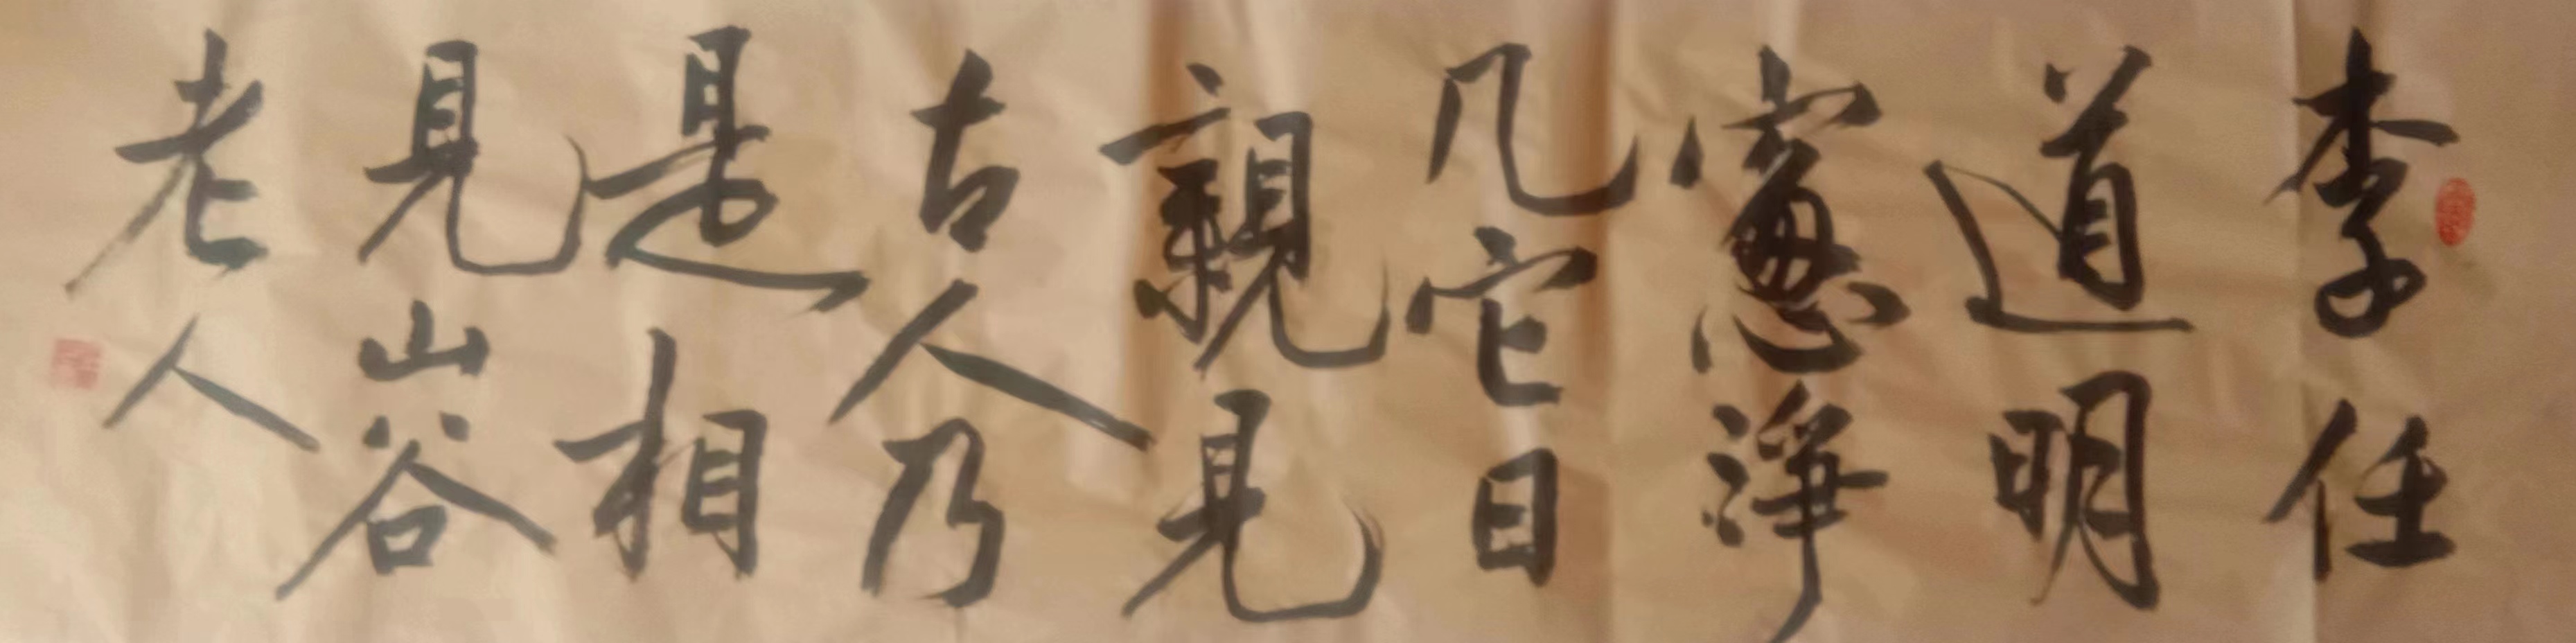 李任
道明
窻淨
几它日
親見
古人乃
是相
見山谷
老人